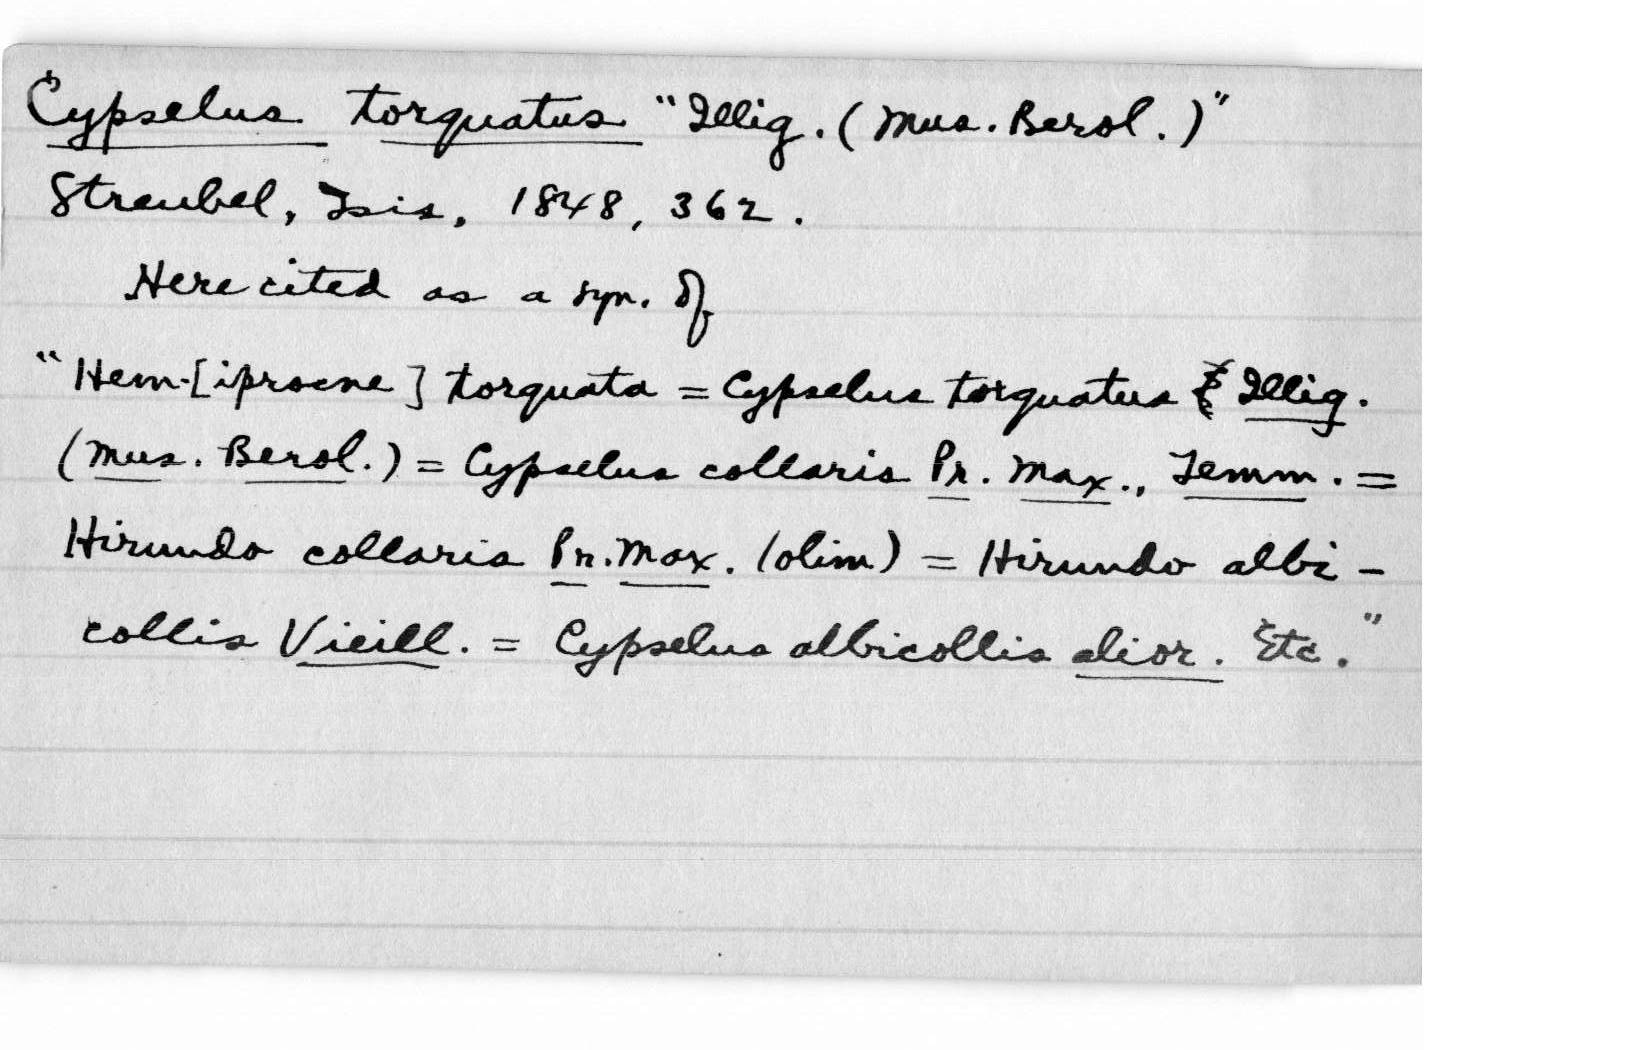 Cypselus torquatus "Illig. (Mus. Berol.)"
Streubel, Isis, 1848, 362.
Here cited as a syn. of
"Hem.[iprocne] torquata = Cypselus torquatus Illig.
(Mus. Berol.) = Cypselus collaris Pr. Max., Temm. =
Hirundo collaris Pr. Max. (olim) = Hirundo albi-
collis Vieill. = Cypselus albicollis alior. Etc."